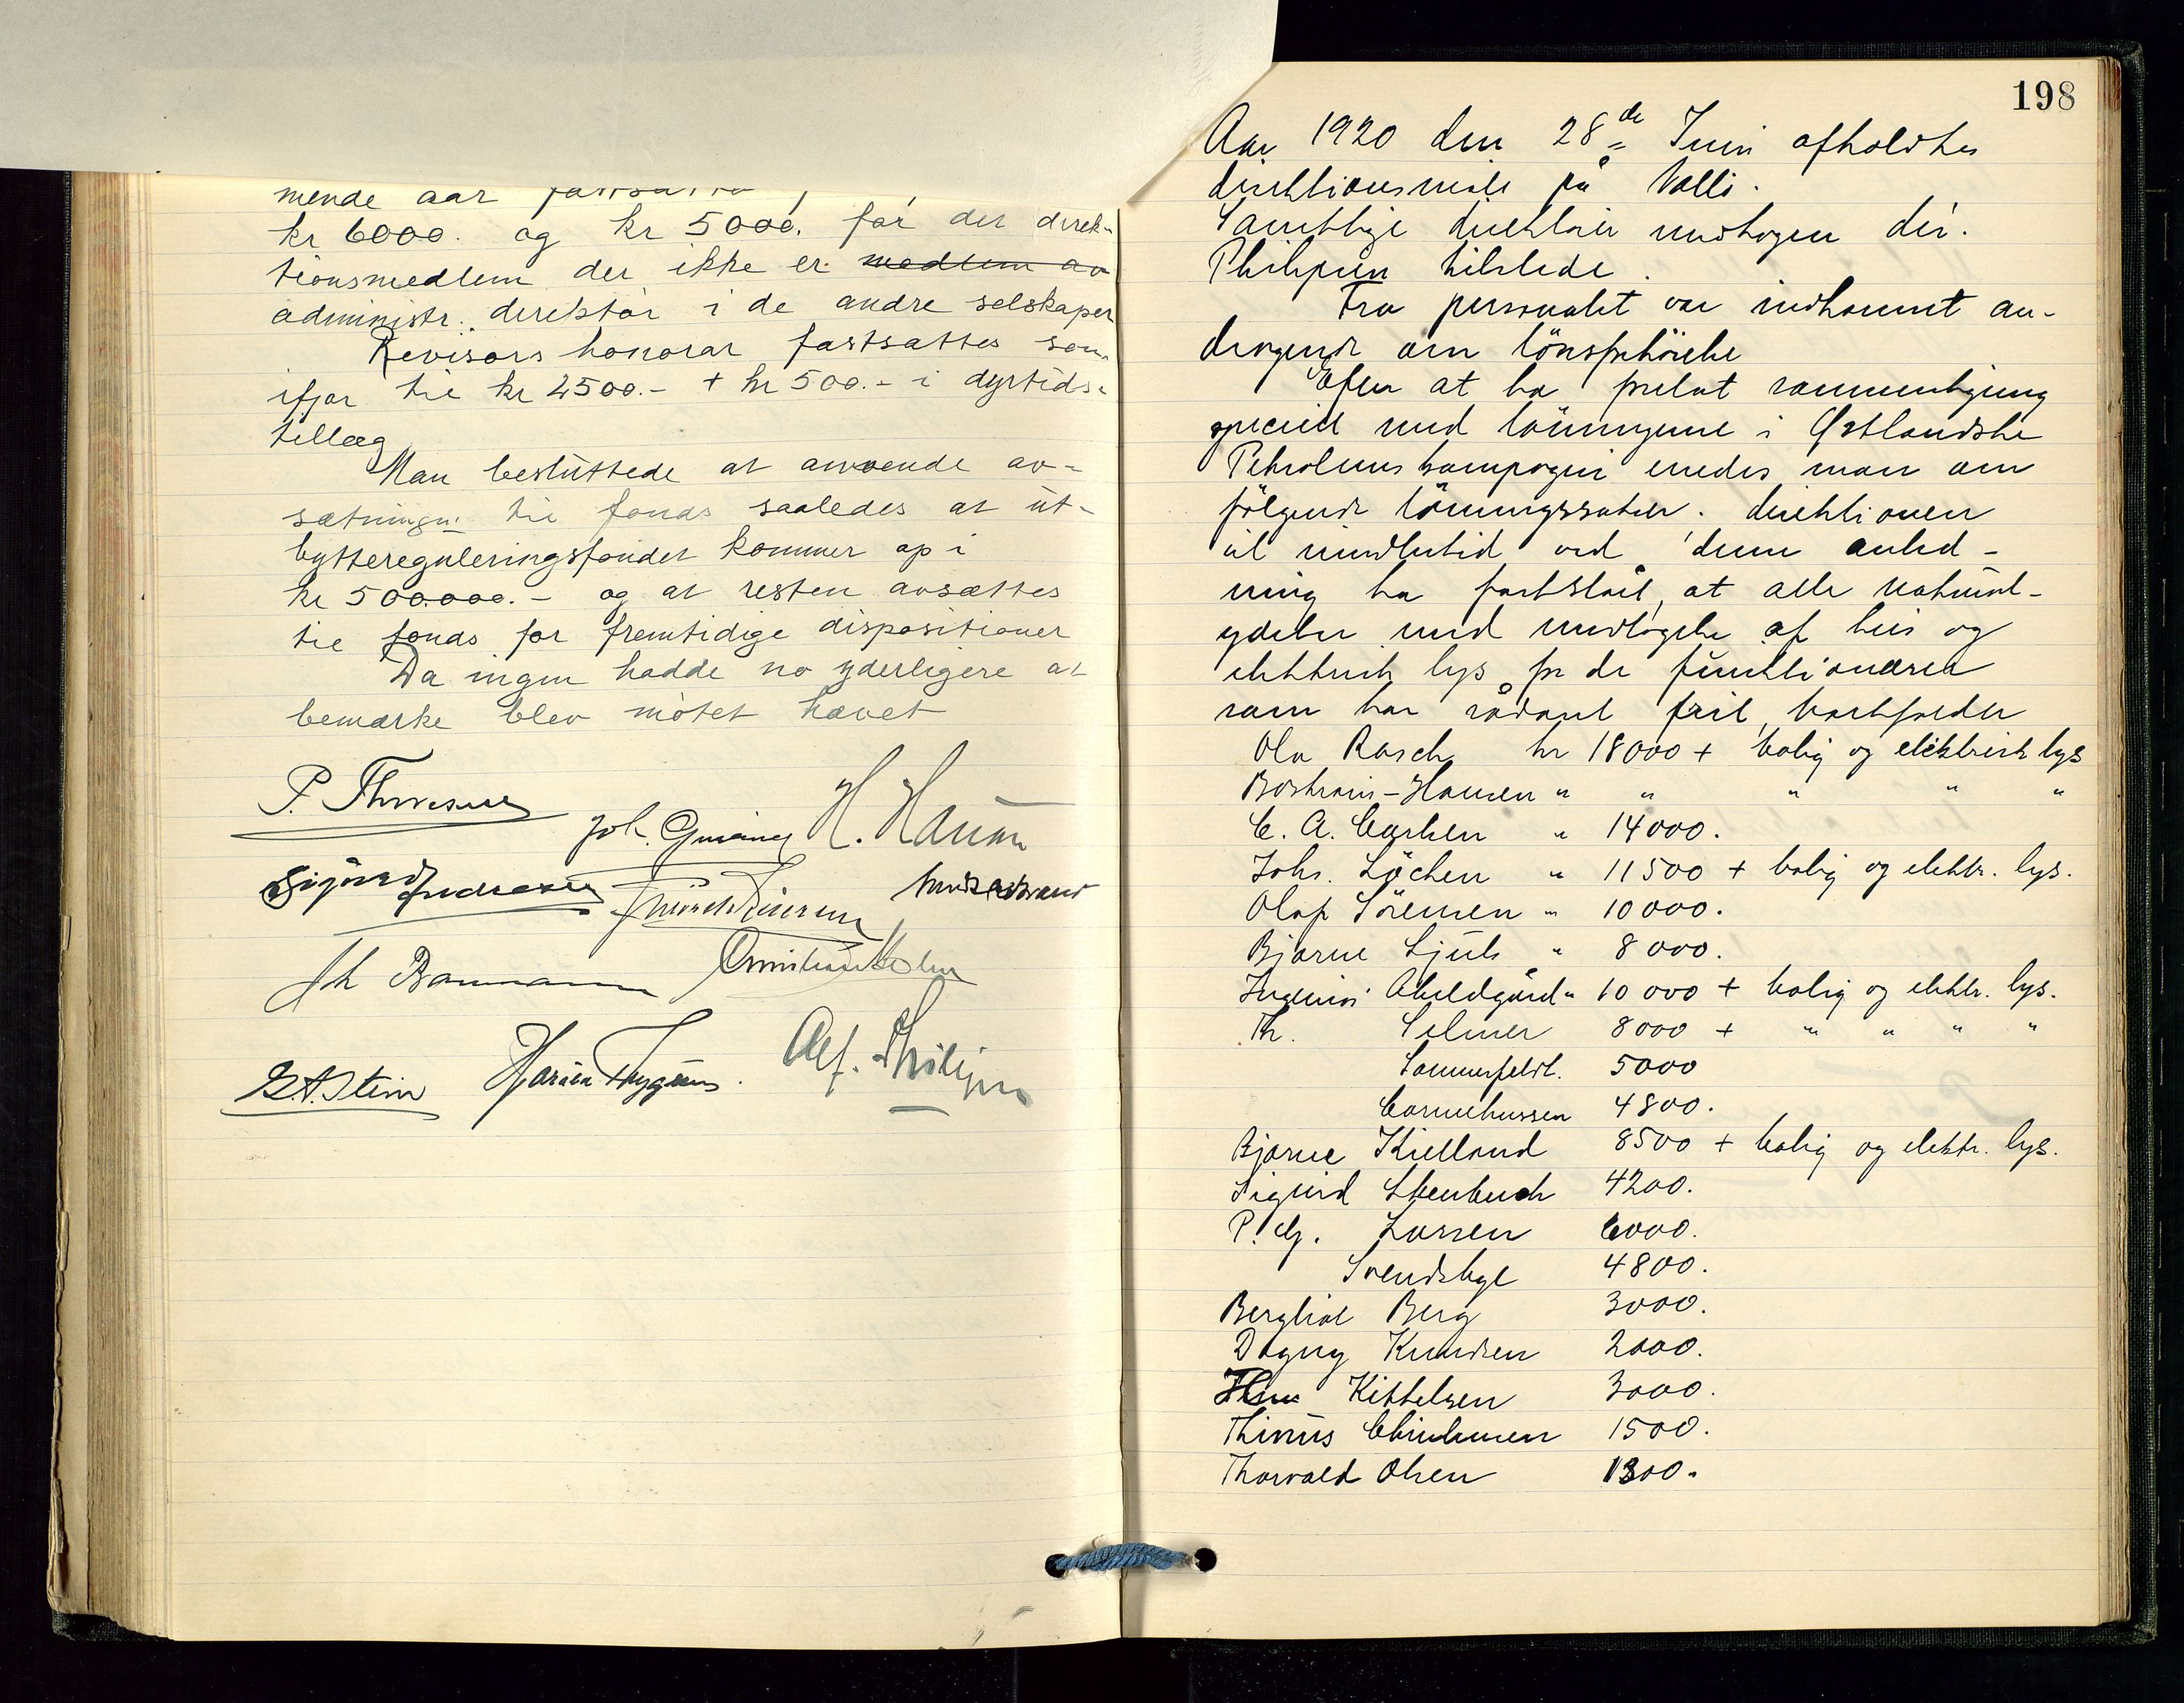 mende aar fastsattes
kr 6000. og kr 5000. for det direk-
tionsmedlem der ikke er medlem av
administr. direktør i de andre selskaper
Revisors honorar fastsattes som
ifjor til kr 2500.- + kr 500.- i dyrtids-
tillæg
Man besluttede at anvende av-
sætningen til fonds saaledes at ut-
byttereguleringsfondet kommer op i
kr 500.000.- og at resten avsættes
til fonds for fremtidige dispositioner
Da ingen hadde no yderligere at
bemærke blev møtet hævet
P.
Joh. H.
Sigurd
Th Baumann
E.A. Stein Harald Alf. Philipsen
198
Aar 1920 den 28de Juni afholdtes
direktionsmøte på Vallö.
Samtlige direktører undtagen dir.
Philipsen tilstede.
Fra personalet var indkommet an-
dragende om lönsforhöielse
Efter at ha foretat sammenligning
specielt med lönningerne i Østlandske
Petroleumskompagni enedes man om
fölgende lönningssatser. Direktionen
vil imidlertid ved denne anled-
ning ha fastslåt, at alle natural-
ydelser med undtagelse af hus og
elektrisk lys for de funktionærer
som har sådant frit, bortfalder
Ola Rasch kr 18000 + bolig og elektrisk lys
Bostrøm-Hansen " " " " "
C. A. Carlsen " 14000.
Johs. Löchen " 11500 + bolig og elektr. lys.
Olaf Sörensen " 10000.
Bjarne Ljuls " 8000.
Ingeniör Abildgård " 10000 + bolig og elektr. lys.
Th. Selmer 8000 + " " " "
Sommerfeldt. 5000
Corneliussen 4800.
Bjarne Kielland 8500 + bolig og elektr. lys.
Sigurd Stenbuch 4200.
P. G. Larsen 6000.
Svendsbye 4800.
Bergliot Berg 3000.
Dagny Knudsen 2000.
Kittelsen 3000.
Thinius Christensen 1500.
Thorvald Olsen 1300.